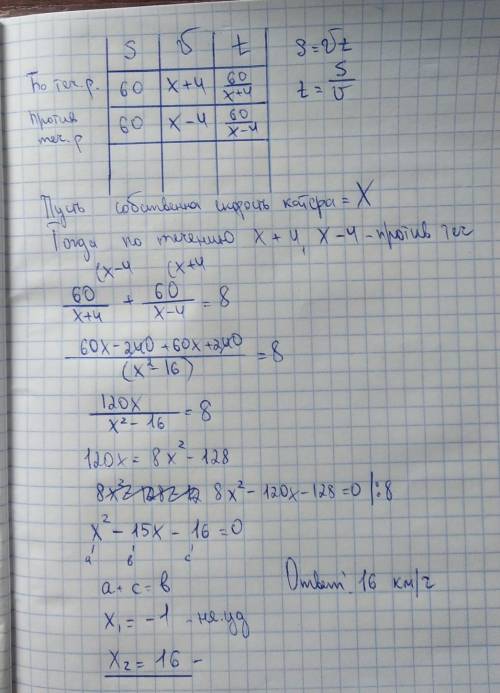 S V t S = Vt
По теч. р. 60 x+4 60/(x+4) t = S/V
Против теч. р 60 x-4 60/(x-4)
Пусть собственна скорость катера = X
Тогда по течению x + 4, x - 4 - против теч
(x-4 (x+4
60/(x+4) + 60/(x-4) = 8
(60x - 240 + 60x + 240)/(x² - 16) = 8
120x/(x² - 16) = 8
120x = 8x² - 128
8x² - 120x - 128 = 0 |:8
x² - 15x - 16 = 0
a в c
a + c = в
x₁ = -1 - не уд Ответ: 16 км/ч
x₂ = 16 -